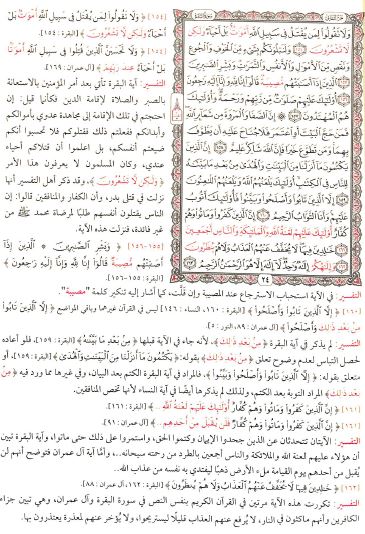 وَلَا تَقُولُوا۟ لِمَن يُقْتَلُ فِى سَبِيلِ ٱللَّهِ أَمْوَٰتٌۢ بَلْ أَحْيَآءٌ وَلَٰكِن
لَّا تَشْعُرُونَ ١٥٤ وَلَنَبْلُوَنَّكُم بِشَىْءٍ مِّنَ ٱلْخَوْفِ وَٱلْجُوعِ
وَنَقْصٍ مِّنَ ٱلْأَمْوَٰلِ وَٱلْأَنفُسِ وَٱلثَّمَرَٰتِ وَبَشِّرِ ٱلصَّٰبِرِينَ
١٥٥ ٱلَّذِينَ إِذَآ أَصَٰبَتْهُم مُّصِيبَةٌ قَالُوٓا۟ إِنَّا لِلَّهِ وَإِنَّآ إِلَيْهِ رَٰجِعُونَ
١٥٦ أُو۟لَٰٓئِكَ عَلَيْهِمْ صَلَوَٰتٌ مِّن رَّبِّهِمْ وَرَحْمَةٌ وَأُو۟لَٰٓئِكَ
هُمُ ٱلْمُهْتَدُونَ ١٥٧ إِنَّ ٱلصَّفَا وَٱلْمَرْوَةَ مِن شَعَآئِرِ ٱللَّهِ
فَمَنْ حَجَّ ٱلْبَيْتَ أَوِ ٱعْتَمَرَ فَلَا جُنَاحَ عَلَيْهِ أَن يَطَّوَّفَ
بِهِمَا وَمَن تَطَوَّعَ خَيْرًا فَإِنَّ ٱللَّهَ شَاكِرٌ عَلِيمٌ ١٥٨ إِنَّ ٱلَّذِينَ
يَكْتُمُونَ مَآ أَنزَلْنَا مِنَ ٱلْبَيِّنَٰتِ وَٱلْهُدَىٰ مِنۢ بَعْدِ مَا بَيَّنَّٰهُ
لِلنَّاسِ فِى ٱلْكِتَٰبِ أُو۟لَٰٓئِكَ يَلْعَنُهُمُ ٱللَّهُ وَيَلْعَنُهُمُ ٱللَّٰعِنُونَ
١٥٩ إِلَّا ٱلَّذِينَ تَابُوا۟ وَأَصْلَحُوا۟ وَبَيَّنُوا۟ فَأُو۟لَٰٓئِكَ أَتُوبُ
عَلَيْهِمْ وَأَنَا ٱلتَّوَّابُ ٱلرَّحِيمُ ١٦٠ إِنَّ ٱلَّذِينَ كَفَرُوا۟ وَمَاتُوا۟ وَهُمْ
كُفَّارٌ أُو۟لَٰٓئِكَ عَلَيْهِمْ لَعْنَةُ ٱللَّهِ وَٱلْمَلَٰٓئِكَةِ وَٱلنَّاسِ أَجْمَعِينَ
١٦١ خَٰلِدِينَ فِيهَا لَا يُخَفَّفُ عَنْهُمُ ٱلْعَذَابُ وَلَا هُمْ يُنظَرُونَ ١٦٢
وَإِلَٰهُكُمْ إِلَٰهٌ وَٰحِدٌ لَّآ إِلَٰهَ إِلَّا هُوَ ٱلرَّحْمَٰنُ ٱلرَّحِيمُ ١٦٣
٢٤
[١٥٤] ﴿وَلَا تَقُولُوا لِمَن يُقْتَلُ فِي سَبِيلِ اللَّهِ أَمْوَاتٌ بَلْ
أَحْيَاءٌ وَلَكِن لَّا تَشْعُرُونَ﴾ [البقرة: ١٥٤].
[١٥٤] ﴿وَلَا تَحْسَبَنَّ الَّذِينَ قُتِلُوا فِي سَبِيلِ اللَّهِ أَمْوَاتًا
بَلْ أَحْيَاءٌ عِندَ رَبِّهِمْ﴾ [آل عمران: ١٦٩].
التفسير: آية البقرة تأتي بعد أمر المؤمنين بالاستعانة
بالصبر والصلاة لإقامة الدين فكأنما قيل: إن
احتجتم في تلك الإقامة إلى مجاهدة عدوي بأموالكم
وأبدانكم ففعلتم ذلك فقتلوكم فلا تحسبوا أنكم
ضيعتم أنفسكم، بل اعلموا أن قتلاكم أحياء
عندي، وكان المسلمون لا يعرفون هذا الأمر
﴿وَلَكِن لَّا تَشْعُرُونَ﴾، وقد ذكر أهل التفسير أنها
نزلت في قتلى بدر، وأن الكفار والمنافقين قالوا: إن
الناس يقتلون أنفسهم طلبًا لمرضاة محمد ﷺ من
غير فائدة، فنزلت هذه الآية.
[١٥٥-١٥٦] ﴿وَبَشِّرِ الصَّابِرِينَ * الَّذِينَ إِذَا
أَصَابَتْهُم مُّصِيبَةٌ قَالُوا إِنَّا لِلَّهِ وَإِنَّا إِلَيْهِ رَاجِعُونَ﴾
[البقرة: ١٥٥-١٥٦].
التفسير: في الآية استحباب الاسترجاع عند المصيبة وإن قلَّت، كما أشار إليه تنكير كلمة "مصيبة".
[١٦٠] ﴿إِلَّا الَّذِينَ تَابُوا وَأَصْلَحُوا﴾ [البقرة: ١٦٠، النساء: ١٤٦] ليس في القرآن غيرهما وباقي المواضع ﴿إِلَّا الَّذِينَ تَابُوا
مِنْ بَعْدِ ذَلِكَ وَأَصْلَحُوا﴾ [آل عمران: ٨٩، النور: ٥].
التفسير: لم يذكر في آية البقرة ﴿مِنْ بَعْدِ ذَلِكَ﴾، لأنه جاء في الآية قبلها ﴿مِنْ بَعْدِ مَا بَيَّنَّاهُ﴾ [البقرة: ١٥٩]، فلو أعاده
حصل التباس لعدم وضوح تعلق ﴿بَعْدِ ذَلِكَ﴾ بقوله: ﴿يَكْتُمُونَ مَا أَنزَلْنَا مِنَ الْبَيِّنَاتِ وَالْهُدَى﴾ [البقرة: ١٥٩]، أو
متعلق بقوله: ﴿إِلَّا الَّذِينَ تَابُوا وَأَصْلَحُوا وَبَيَّنُوا﴾، فالمراد في آية البقرة الكتم بعد البيان، وفي غيرها مما ورد فيه ﴿مِنْ
بَعْدِ ذَلِكَ﴾ المراد التوبة بعد الكتم، ولذلك لم يذكرها أيضًا في آية النساء لأنها تخص المنافقين.
[١٦١] ﴿إِنَّ الَّذِينَ كَفَرُوا وَمَاتُوا وَهُمْ كُفَّارٌ أُولَئِكَ عَلَيْهِمْ لَعْنَةُ اللَّهِ ...﴾ [البقرة: ١٦١].
[١٦١] ﴿إِنَّ الَّذِينَ كَفَرُوا وَمَاتُوا وَهُمْ كُفَّارٌ فَلَن يُقْبَلَ مِنْ أَحَدِهِم ...﴾ [آل عمران: ٩١].
التفسير: الآيتان تتحدثان عن الذين جحدوا الإيمان وكتموا الحق، واستمروا على ذلك حتى ماتوا، وآية البقرة تبين
أن هؤلاء عليهم لعنة الله والملائكة والناس أجمعين بالطرد من رحمته سبحانه...، وأمَّا آية آل عمران فتوضح أنهم لن
يقبل من أحدهم يوم القيامة ملء الأرض ذهبًا ليفتدي به نفسه من عذاب الله.
[١٦٢] ﴿خَالِدِينَ فِيهَا لَا يُخَفَّفُ عَنْهُمُ الْعَذَابُ وَلَا هُمْ يُنظَرُونَ﴾ [البقرة: ١٦٢، آل عمران: ٨٨].
التفسير: تكررت هذه الآية مرتين في القرآن الكريم بنفس النص في سورة البقرة وآل عمران، وهي تبين جزاء
الكافرين وأنهم ماكثون في النار، لا يُرفع عنهم العذاب قليلًا ليستريحوا، ولا يُؤخر عنهم لمعذرة يعتذرون بها.